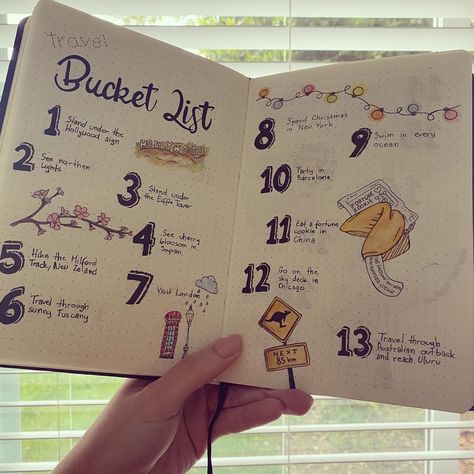 Travel
Bucket List
1 Stand under the
Hollywood sign
HOLLYWOOD
2 See northen
Lights
3 Stand under
the Eiffle Tower
4 See cherry
blossom in
Japan
5 Hike the Milford
Track, New Zeland
6 Travel through
sunny Tuscany
7 Visit London
8 Spend Christmas
in New York
9 Swim in every
ocean
10 Party in
Barcelona
11 Eat a fortune
cookie in
China
FORTUNE
COOKIE
12 Go on the
sky deck in
Chicago
NEXT
85 km
13 Travel through
Australian outback
and reach Uluru